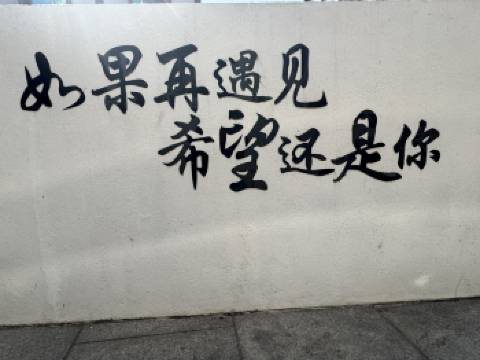 如果再遇见
希望还是你